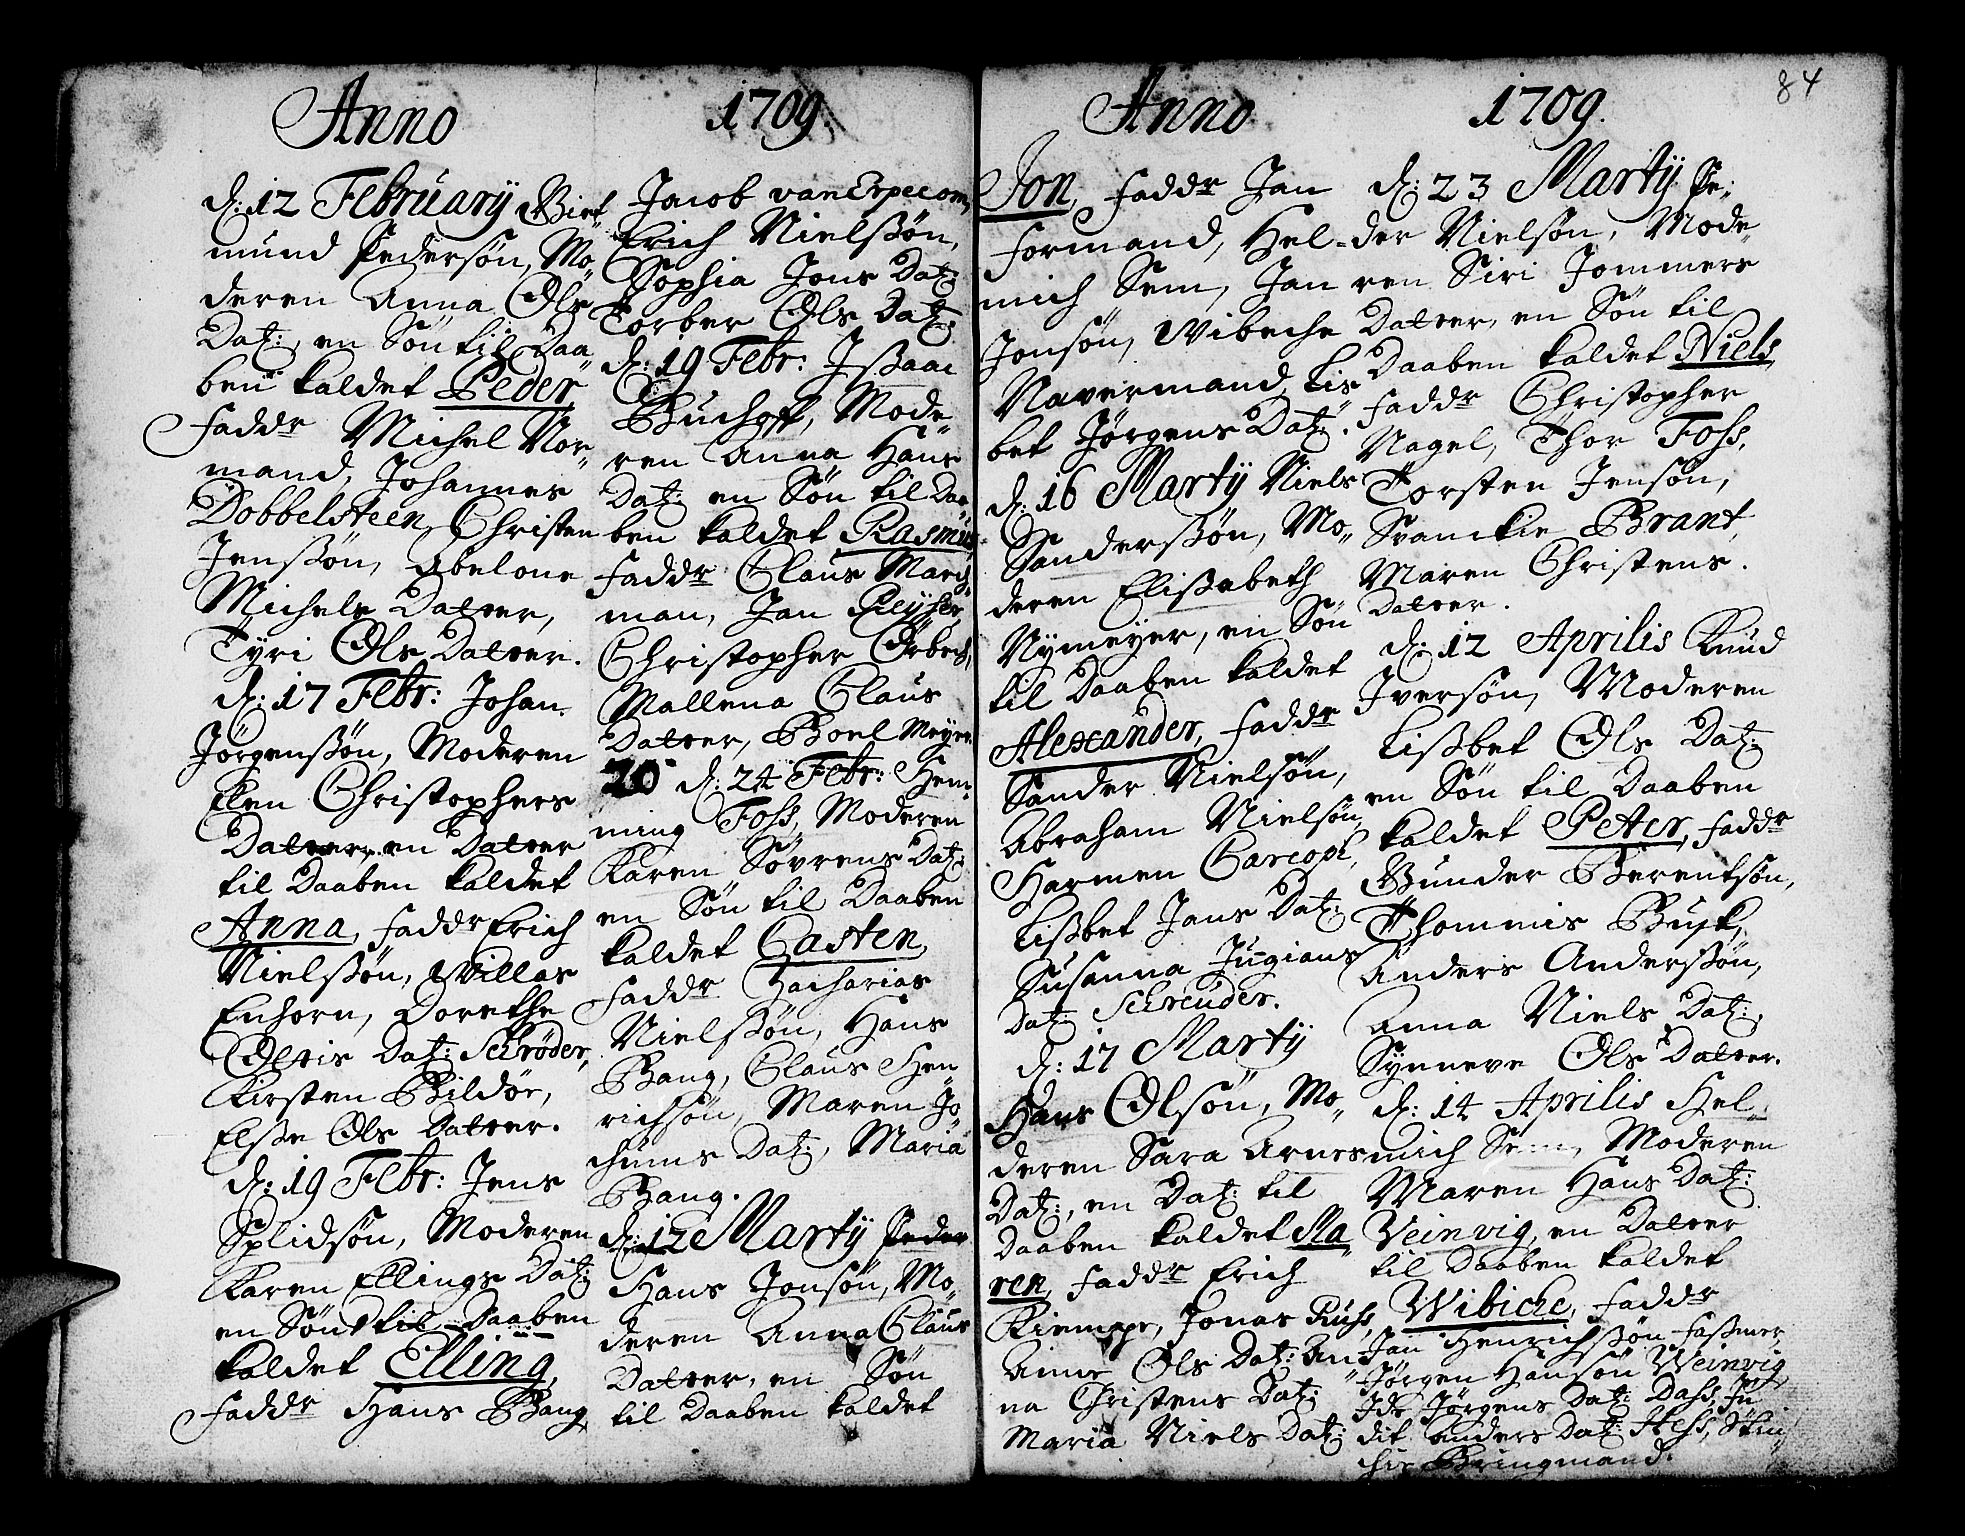 Anno 1709.
d: 12 February Virt
mund Pedersøn, Mo„
deren Anna Ols
Dat:, en Søn til Daa„
ben kaldet Peder
Faddr Michel Nor„
mand, Johannes
Dobbelsteen, Christen
Jenssøn, Abelone
Michels Datter,
Tyri Ols Datter.
d: 17 Febr: Johan
Jørgenssøn, Moderen
Elen Christophers
Datter, en Datter
til Daaben kaldet
Anna, Faddr Erich
Nielssøn, Willas
Enhorn, Dorethe
Oltis Dat: Schrøder,
Kirsten Bildør,
Elsse Ols Datter.
d: 19 Febr: Jens
Splidsøn, Moderen
Karen Ellings Dat:
en Søn til Daaben
kaldet Elling,
Faddr Hans Bang
Jacob van Erpecom,
Erich Nielssøn,
Sophia Jons Dat:
Torber Ols Dat:
d: 19 Febr: Issaac
Buchoff, Mode„
ren Anna Hans
Dat: en Søn til Daa„
ben kaldet Rasmus,
Faddr Claus March„
man, Jan Reyser,
Christopher Ørbech,
Mallena Claus
Datter, Boel Meyer.
20 d: 24 Febr: Hem„
ming Foss, Moderen
Karen Søvrens Dat:
en Søn til Daaben
kaldet Casten,
Faddr Zacharias
Nielssøn, Hans
Bang, Claus Hen
richsøn, Maren Jo
chims Dat:, Maria
Bang.
d: 12 Marty Peder
Hans Jonsøn, Mo„
deren Anna Claus
Datter, en Søn
til Daaben kaldet
Anno 1709. 84
Jon, Faddr Jan
Formand, Hel-
mich Sem, Jan
Jonsøn, Wibeche
Navermand, Lis„
bet Jørgens Dat:.
d: 16 Marty Niels
Sanderssøn, Mo„
deren Elissabeth
Nymeyer, en Søn
til Daaben kaldet
Alexander, Faddr
Sander Nielsøn,
Abraham Nielsøn,
Harmen Carcopf,
Lissbet Jans Dat:
Susanna Jugians
Dat: Schreuder.
d: 17 Marty
Hans Olsøn, Mo„
deren Sara Arnes
Dat:, en Dat: til
Daaben kaldet Ma„
ren, Faddr Erich
Kiempe, Jonas Russ,
Anne Ols Dat: An„
na Christens Dat:
Maria Niels Dat:
d: 23 Marty Pe:
der Nielsøn, Mode„
ren Siri Jommers
Datter, en Søn til
Daaben kaldet Niels,
Faddr Christopher
Nagel, Thor Foss,
Torsten Jensøn,
Svanckie Brant,
Maren Christens
Datter.
d: 12 Aprilis Knud
Iversøn, Moderen
Lissbet Ols Dat:
en Søn til Daaben
kaldet Peter, Faddr
Gunder Berentsøn,
Thommis Busk,
Anders Anderssøn,
Anna Niels Dat:,
Synneve Ols Datter.
d: 14 Aprilis Hel„
mich Sem, Moderen
Maren Hans Dat:
Weinvig, en Datter
til Daaben kaldet
Wibiche, Faddr
Jan Henrichssøn Fassmer,
Jørgen Hansøn Weinvig,
Ide Jørgens Dat: Dass, Ju
dit Anders Dat: Hess, Stin„
chie Bringmand.